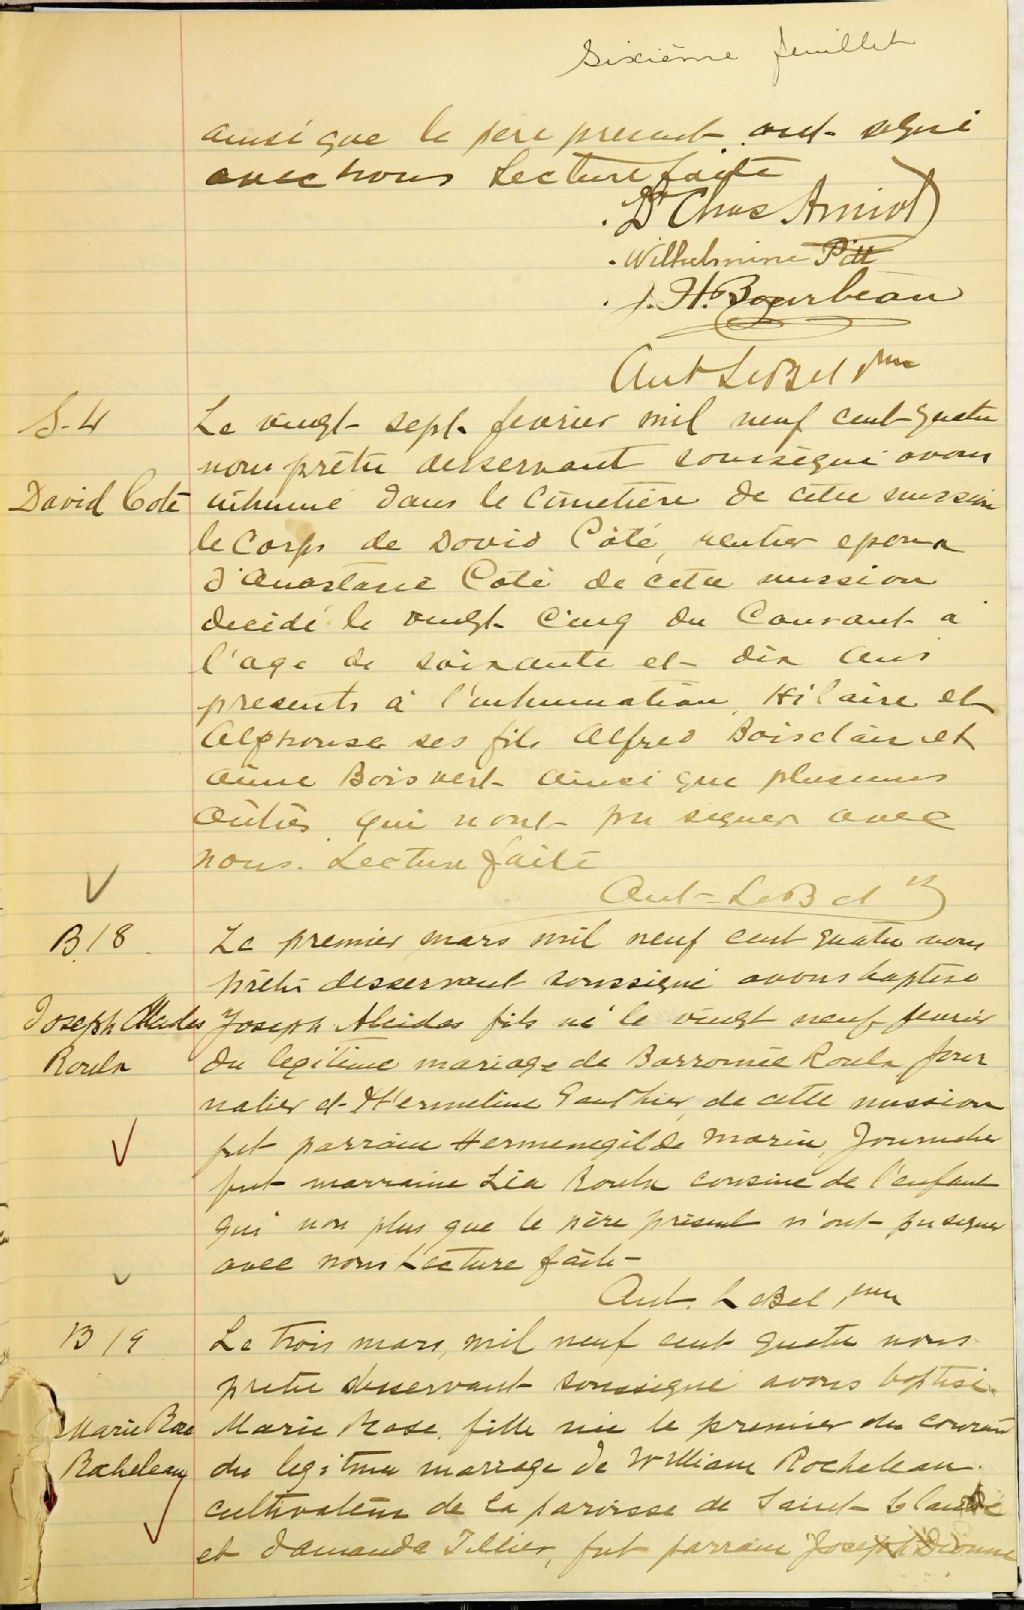 Sixième feuillet
ainsi que le pere present ont signé
avec nous Lecture faite
Dr Chas Amiot
Wilhelmine Pitt
J. H. Bourbeau
Ant LeBel ptre
S-4
Le vingt-sept fevrier mil neuf cent quatre
nous prêtre desservant soussigné avons
David Coté
inhumé dans le Cimetière de cette mission
le Corps de David Côté, rentier epoux
d'Anastasie Coté de cette mission
decédé le vingt Cinq du Courant a
l'age de soixante et dix ans
presents à l'inhumation Hilaire et
Alphonse ses fils Alfred Boisclair et
Aimé Boisvert ainsi que plusieurs
autres qui n'ont pu signer avec
nous. Lecture faite
Ant LeBel
B 18
Le premier mars mil neuf cent quatre nous
prêtre desservant soussigné avons baptisé
Joseph Alcidas
Joseph Alcidas fils né le vingt neuf fevrier
Roula
du legitime mariage de Barromée Roula jour
nalier et Hermeline Gauthier de cette mission
fut parrain Hermenegilde Marin, Journalier
fut marraine Léa Roula cousine de l'enfant
qui non plus que le père présent n'ont pu signer
avec nous Lecture faite
Ant. LeBel ptre
B 19
Le trois mars, mil neuf cent quatre nous
pretre desservant soussigné avons baptisé
Marie Rose
Marie Rose fille née le premier du courant
Rocheleau
du legitime mariage de William Rocheleau
cultivateur de la paroisse de Saint Claude
et d'amanda Tellier, fut parrain Joseph Dionne